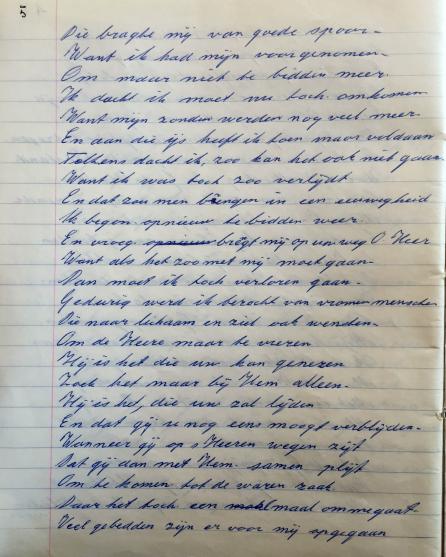 5
Die braght mij van goede spoor -
Want ik had mijn voorgenomen -
Om maar niet te bidden meer.
Ik dacht ik moet nu toch omkomen
Want mijn zonden werden nog veel meer
En dan die ijs heeft ik toen maar voldaan
Telkens dacht ik, zoo kan het ook niet gaan
Want ik was toch zoo verlijdt
En dat zou men brengen in een eeuwigheid
Ik begon opnieuw te bidden weer
En vroeg bregt mij op uw weg O Heer
Want als het zoo met mij moet gaan -
Dan moet ik toch verloren gaan -
Gedurig werd ik berocht van vromen menschen
Die naar lichaam en ziel ook wenden -
Om de Heere maar te vreezen
Hij is het die uw kan genezen
Zoek het maar bij Hem alleen -
Hij is het, die uns zal lijden
En dat gij u nog eens moogt verblijden -
Wanneer gij op s Heeren wegen zijt
Dat gij dan met Hem samen plijt
Om te komen tot de waren zaak
Daar het toch een maal ommegaat
Veel gebedden zijn er voor mij opgegaan